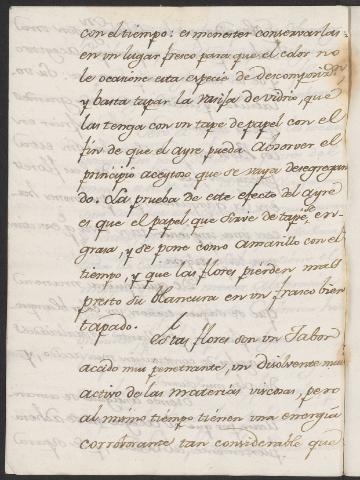 con el tiempo: es menester conservarlas
en un lugar fresco para que el calor no
le ocasione esta especie de descomposicion
y basta tapar la vasija de vidrio, que
las tenga con un tape de papel con el
fin de que el ayre pueda absorver el
principio aceytoso que se vaya desegregan
do. La prueba de este efecto del ayre
es que el papel que sirve de tape, en-
grasa, y se pone como amarillo con el
tiempo, y que las flores pierden mas
presto su blancura en un frasco bien
tapado.
Estas flores son un sabor
acido muy penetrante, un disolvente mui
activo de las materias viscosas, pero
al mismo tiempo tienen una energia
corroborante tan considerable que